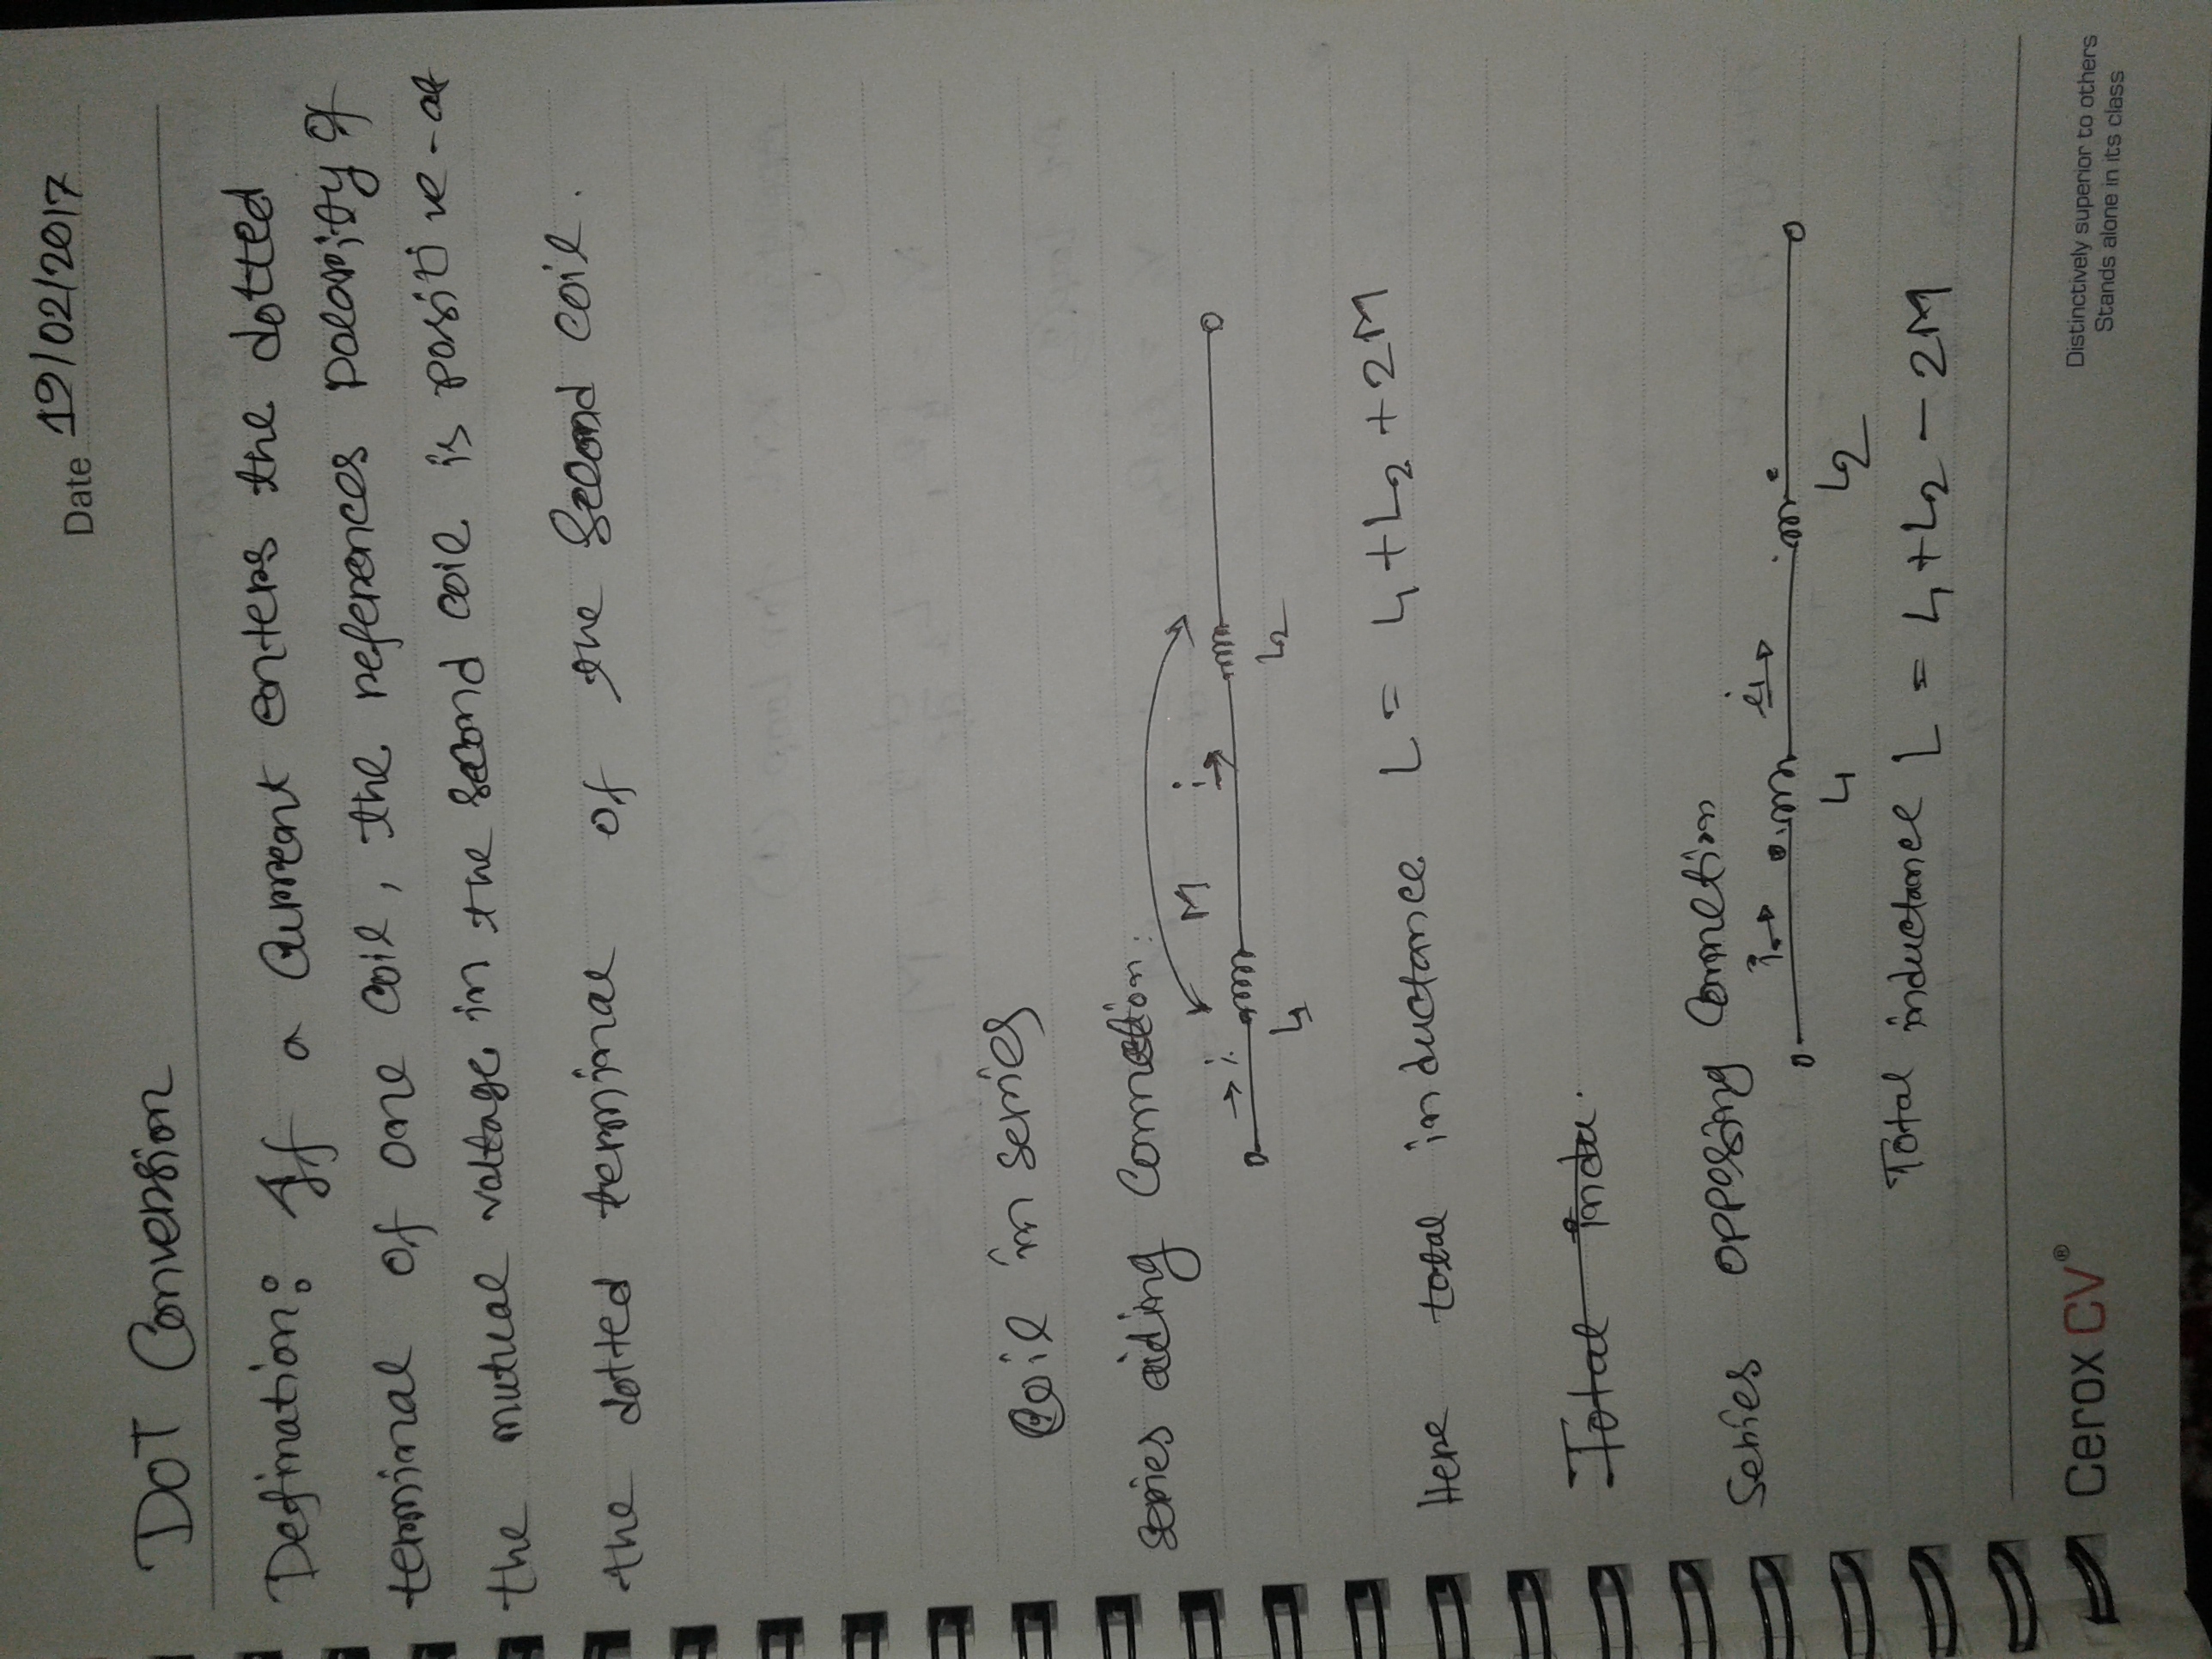 Date 19/02/2017
DOT Conversion
Defination: If a Current enters the dotted
terminal of one coil, the references polarity of
the mutual voltage in the second coil is positive - at
the dotted terminal of the second coil.
Coil in series
series aiding Connection:
M
i i
L1 L2
Here total inductance L = L1 + L2 + 2M
Total indu.
Series opposing Connetion
i i
L1 L2
Total inductance L = L1 + L2 - 2M
Cerox CV®
Distinctively superior to others
Stands alone in its class